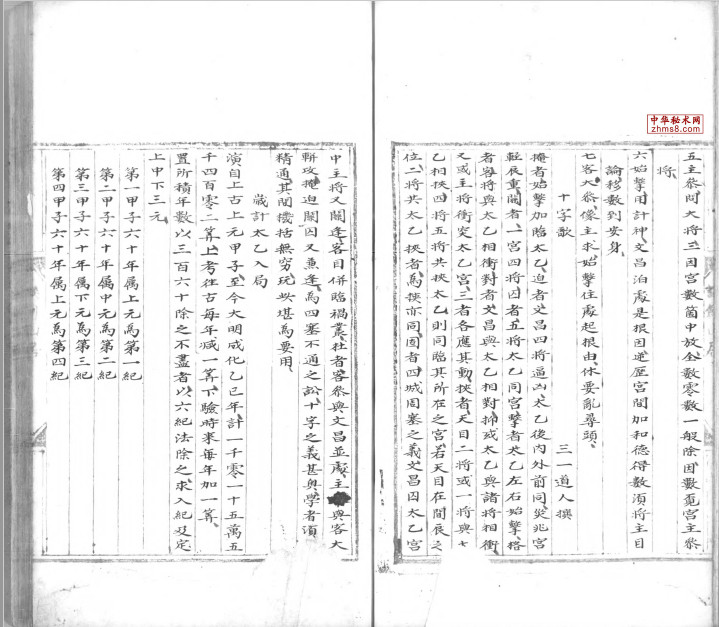 中华秘术网
zhms8.com
五主叅問大將三因宫數箇中放全數零數一般除因數覓宫主叅
將
六始擊用計神文昌泊處是根因逆歷宫間加和德得數須將主目
論移數到安身
七客大叅像主求始擊住處起根由休要亂尋頭
十字歌 三一道人撰
掩者始擊加臨太乙迫者文昌四將逼凶太乙後内外前同災兆宫
輕辰重關者一宫四將囚者五將太乙同宫擊者太乙左右始擊格
者客將與太乙相衝對者文昌與太乙相對掃或太乙與諸將相衝
又或主將衝突太乙宫三者各應其動挾者天目二將或一將與
乙相挾四將五將共挾太乙則同臨其所在之宫若天目在間辰之
位二將共太乙挾者爲挾亦同圄者四城周塞之義文昌囚太乙宫
中主將又關逢客目併臨禍叢杜者客叅與文昌並處主與客大
斬攻掩迫關囚又兼逢爲四塞不通之訟十字之義甚奥學者須
精通其関機括無窮玩此堪爲要用
嵗計太乙入局
演自上古上元甲子至今大明成化乙巳年計一千零一十五萬五
千四百零二算上考往古每年减一算下驗時來每年加一算
置所積年數以三百六十除之不盡者以六紀法除之求入紀及定
上中下三元
第一甲子六十年属上元爲第一紀
第二甲子六十年属中元爲第二紀
第三甲子六十年属下元爲第三紀
第四甲子六十年属上元爲第四紀